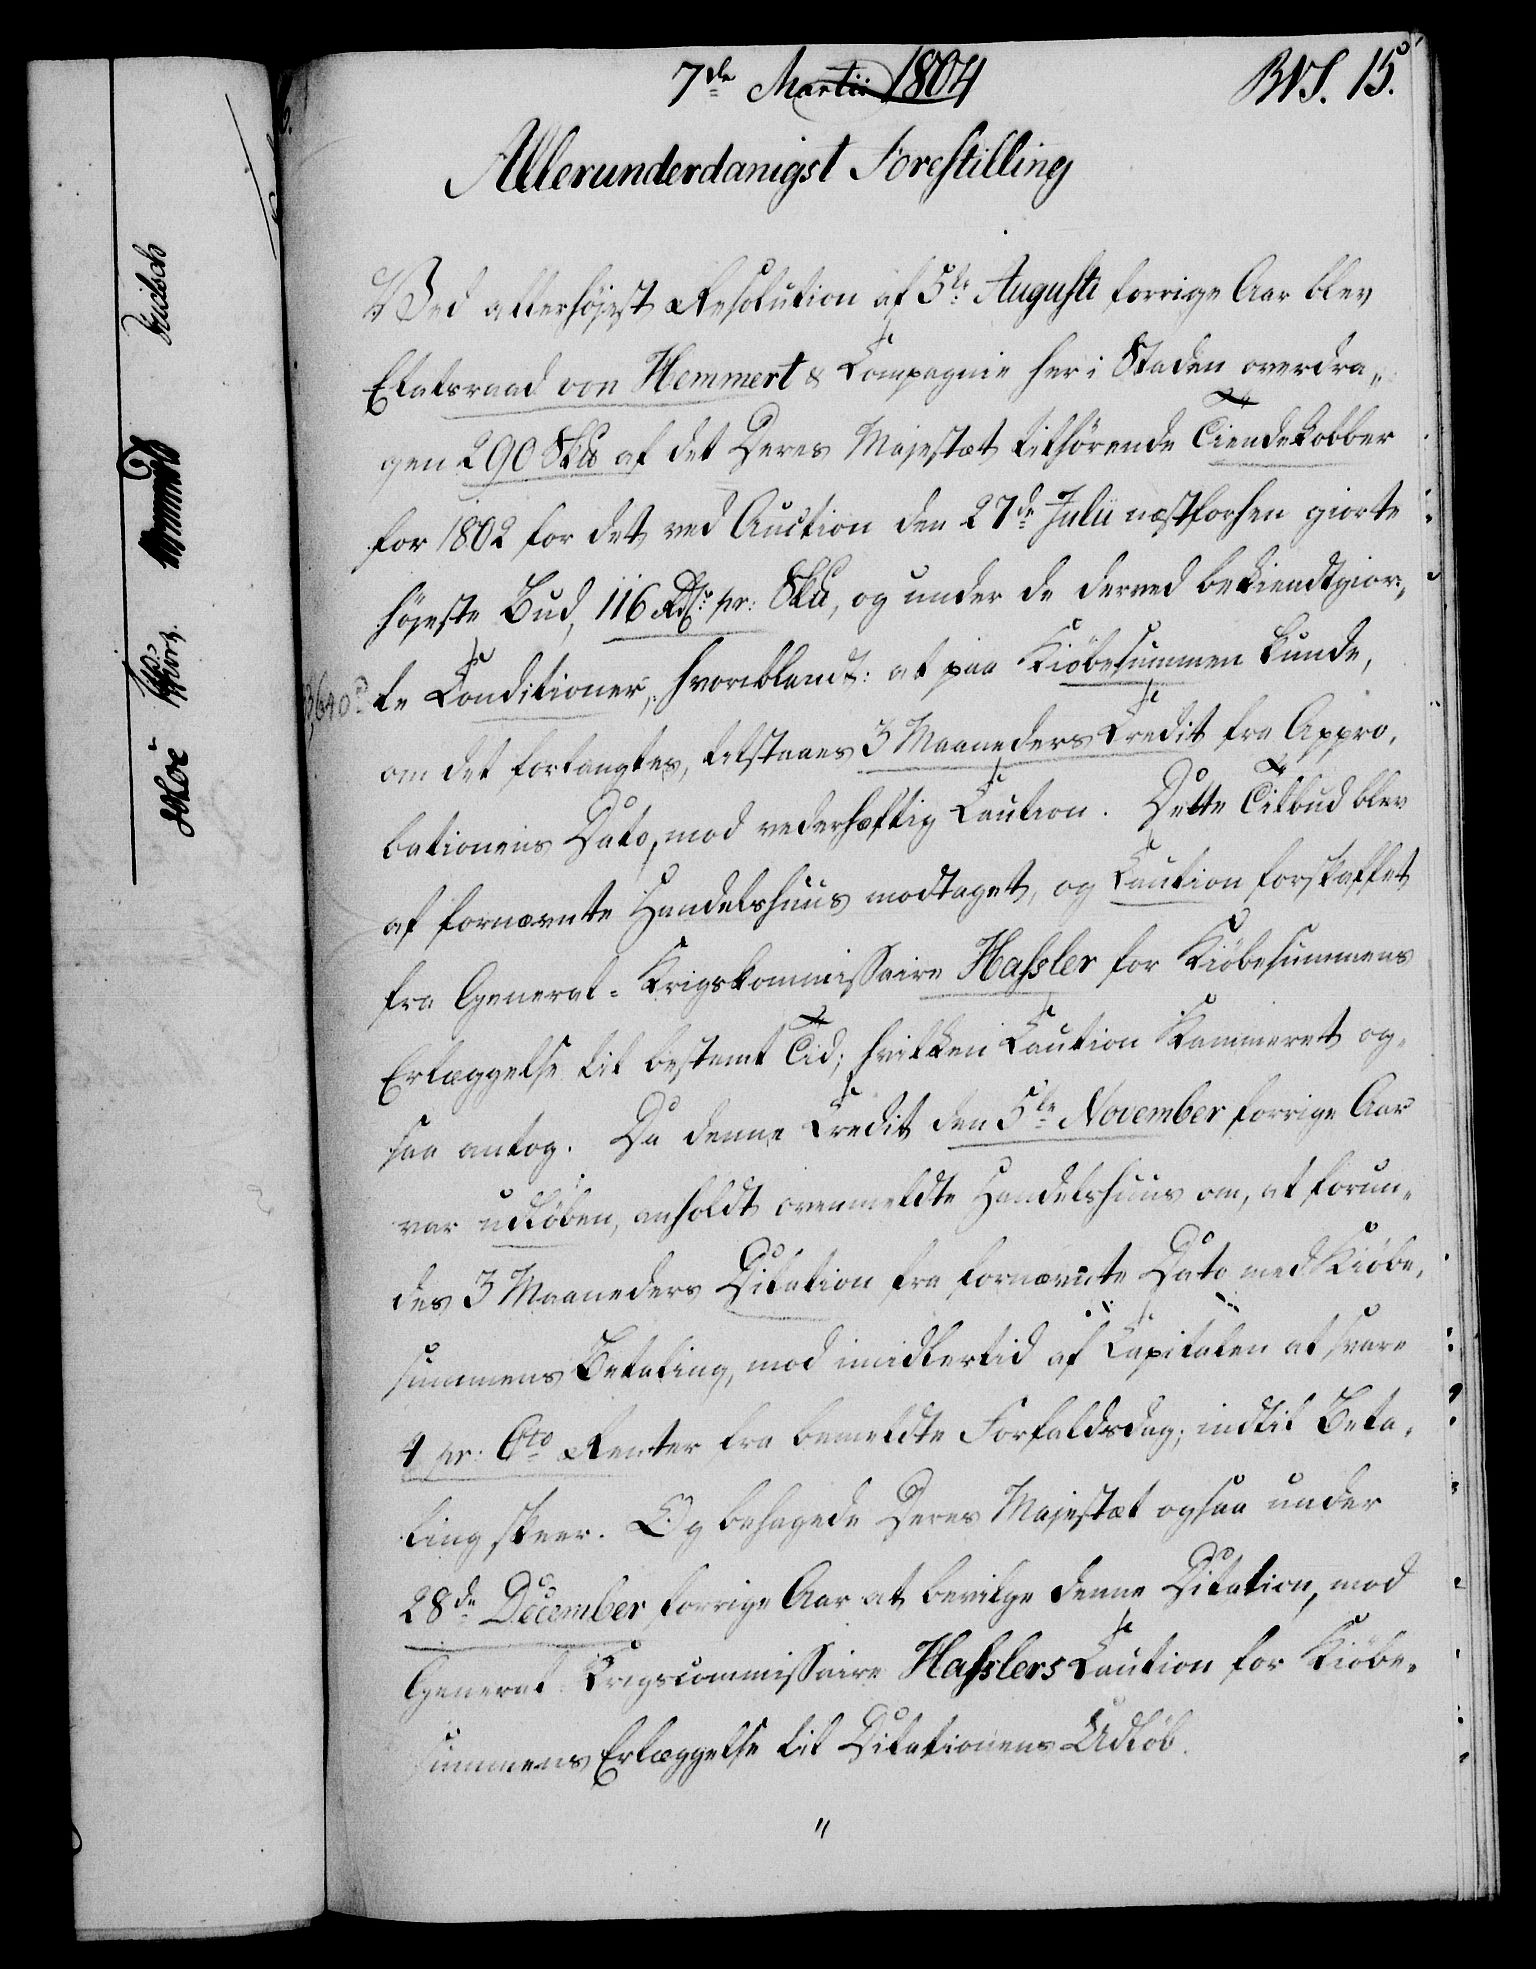 7de Martii 1804
BVS. 15.
Allerunderdanigst Forestilling
Ved allerhøjest Resolution af 5te Augusti forrige Aar blev
Etatsraad von Hemmert & Compagnie her i Staden overdra„
gen 290 Sku af det Deres Majestæt tilhørende Tiendekobber
for 1802 for det ved Auction den 27de Julii næstforhen giorte
højeste Bud, 116 Rdr. pr: Sku, og under de derved bekiendtgior„
te Conditioner, hvoriblandt: at paa Kiöbesummen kunde,
om det forlangtes, tilstaaes 3 Maaneders Credit fra Appro„
bationens Dato, mod vederhæftig Caution. Dette Tilbud blev
af fornævnte Handelshuus modtaget, og Caution forskaffet
fra General-Krigskommissaire Hassler for Kiöbesummens
Erlæggelse til bestemt Tid; hvilken Caution Kammeret og„
saa antog. Da denne Credit den 5te November forrige Aar
var udløben, anholdt ovenmeldte Handelshuus om, at forun„
des 3 Maaneders Dilation fra fornævnte Dato med Kiöbe„
summens Betaling, mod imidlertid af Capitalen at svare
4 pr: Cto Renter fra bemeldte Forfaldsdag, indtil Beta„
ling skeer. Og behagede Deres Majestæt ogsaa under
28de December forrige Aar at bevilge denne Dilation, mod
General Krigscommissaire Hasslers Caution for Kiöbe„
summens Erlæggelse til Dilationens Udløb.
"